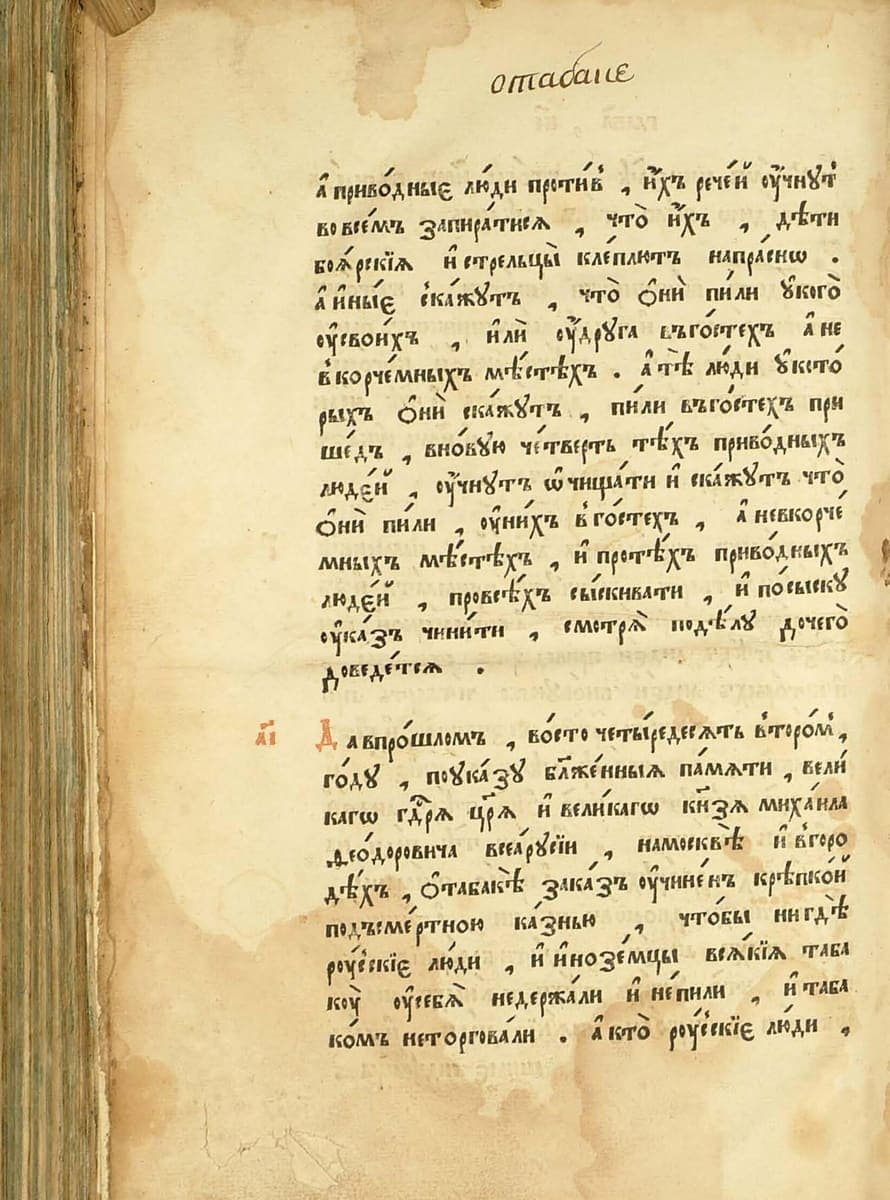 отабаце
а҆ приво́дныє лю́ди проти́в̾ , и҆́хъ рече́й ᲂу҆чнꙋ́т̾
во всѐмъ запира́тисѧ , что̀ и҆́хъ , дѣ́ти
боѧ́рскїѧ и҆ стрельцы̀ кле́плютъ напра́снѡ .
а҆ и҆ны́є ска́жꙋтъ , что̀ ѻ҆нѝ пи́ли ꙋ҆ кого̀
ᲂу҆ свои́хъ , и҆лѝ ᲂу҆ дрꙋга въ го́стехъ а҆ не
в̾ корче́мныхъ мѣ́стѣхъ . а҆ тѣ̀ лю́ди ꙋ҆ кото́
рыхъ ѻ҆нѝ ска́жꙋтъ , пи́ли въ го́стехъ при
ше́дъ , вно́вꙋю че́тверть тѣ́хъ приво́дныхъ
людє́й , ᲂу҆чнꙋ́тъ ѡ҆чища́ти и҆ ска́жꙋтъ что̀
ѻ҆нѝ пи́ли , ᲂу҆ ни́хъ в̾ го́стехъ , а҆ не в корче́
мныхъ мѣ́стѣхъ , и҆ про тѣ́хъ приво́дныхъ
людє́й , про всѣ́хъ сы́скивати , и҆ по сы́скꙋ
ᲂу҆ка́зъ чини́ти , смотрѧ̀ по дѣ́лꙋ до чего̀
доведе́тсѧ .
а҃і Да в про́шломъ , во́ сто четы́редесѧть в̾торо́м̾ ,
го́дꙋ , по ᲂу҆ка́зꙋ бл҃же́нныѧ па́мѧти , вели́
кагѡ гдⷭ҇рѧ цр҃ѧ и҆ вели́кагѡ кн҃зѧ михаи́ла
ѳео́доровича всеа̀ рꙋсі́и , на москвѣ̀ и҆ в̾ горо
дѣ́хъ , ѻ҆ табакѣ̀ зака́зъ ᲂу҆чине́нъ крѣ́пкой
подъ сме́ртною ка́знью , что́бы нигдѣ̀
рᲂу́сскїє лю́ди , и҆ и҆ноземцы всѧ́кїѧ таба
кᲂу̀ ᲂу҆ себѧ̀ не держа́ли и҆ не́ пили , и҆ таба
ко́мъ не торгова́ли . а҆ кто̀ рᲂу́сскїє лю́ди ,